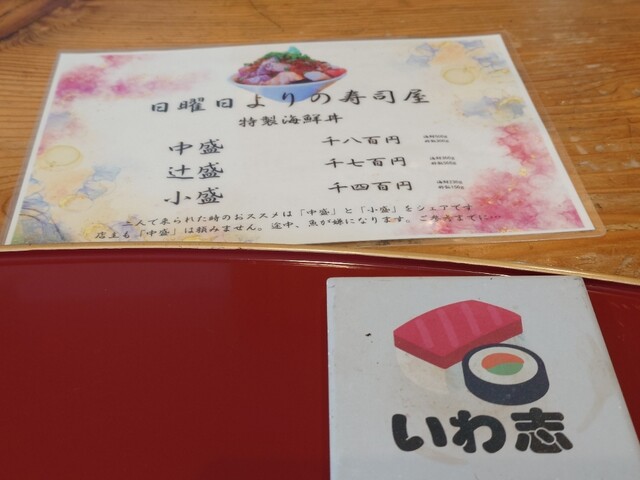 日曜日よりの寿司屋
特製海鮮丼
中盛 千八百円
辻盛 千七百円
小盛 千四百円
二人で来られた時のおススメは「中盛」と「小盛」をシェアです
店主も「中盛」は頼みません。途中、魚が嫌になります。ご参考までに…
いわ志